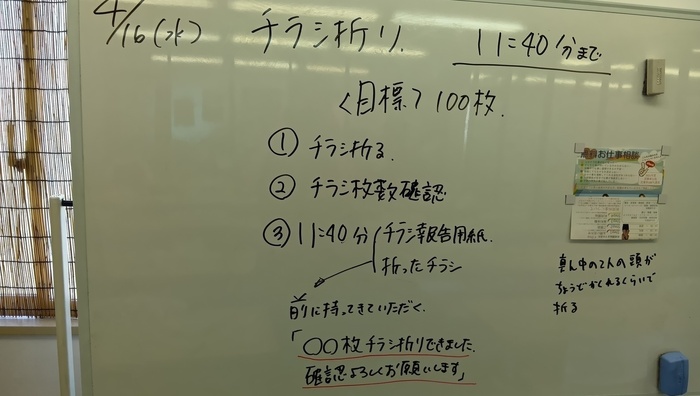 4/16(水) チラシ折り 11:40分まで
<目標>100枚
① チラシ折る
② チラシ枚数確認
③ 11:40分 チラシ報告用紙
折ったチラシ
前に持ってきていただく
「〇〇枚チラシ折りできました。
確認よろしくお願いします」
お仕事相談
真ん中の2人の頭が
ちょうどかくれるくらいで
折る